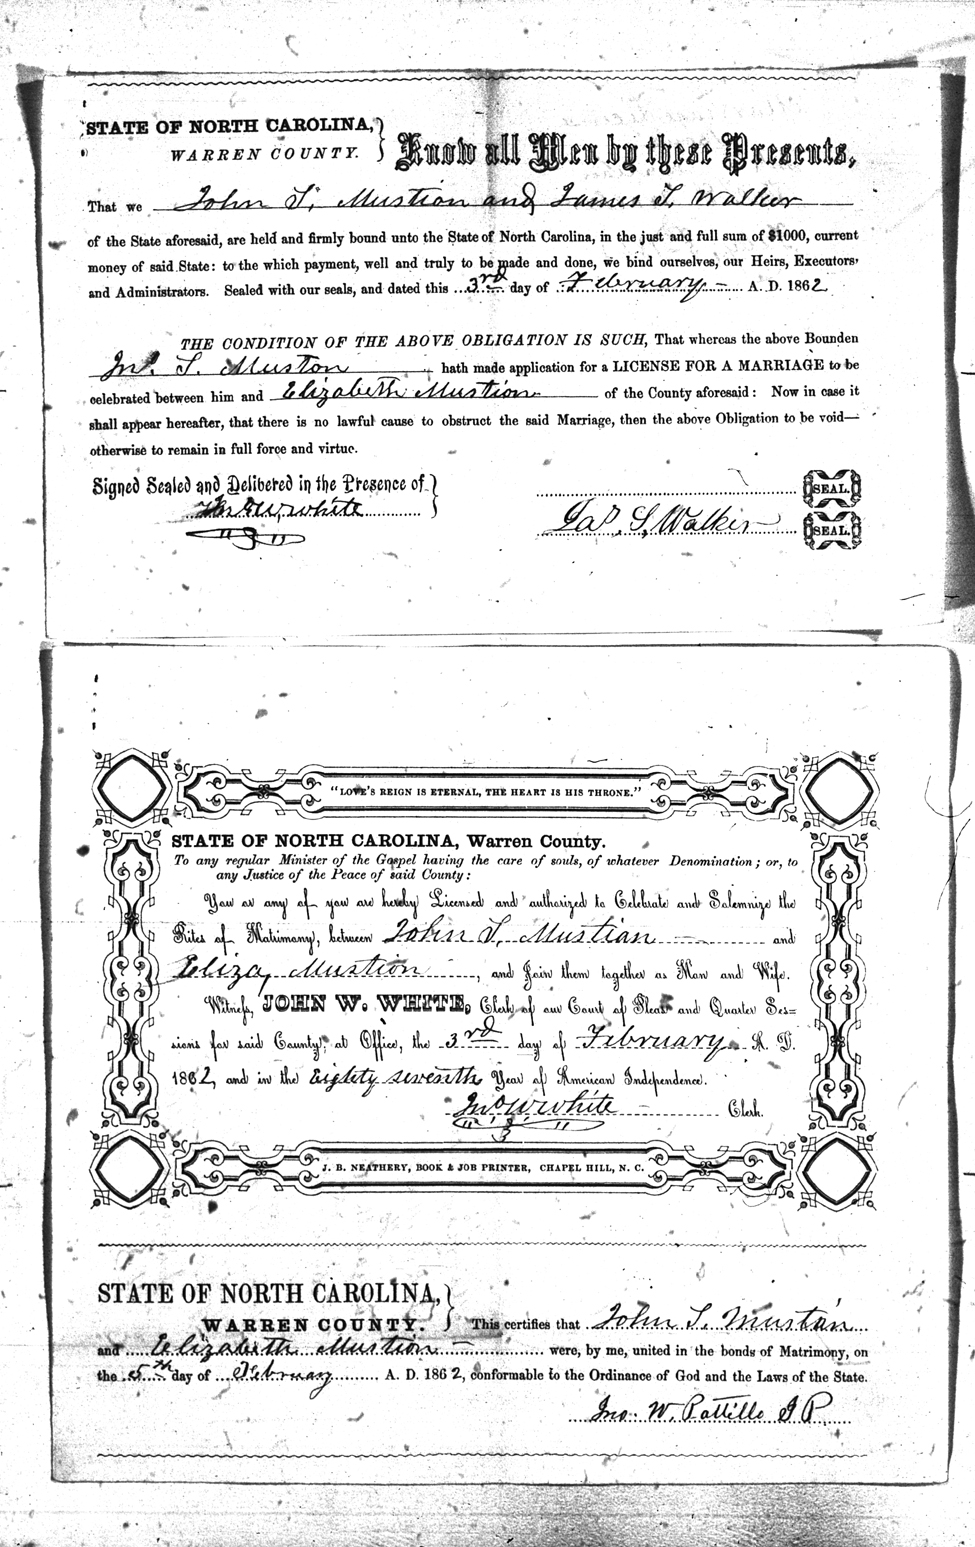 STATE OF NORTH CAROLINA,
WARREN COUNTY.
Know all Men by these Presents,
That we John T. Mustion and James T. Walker
of the State aforesaid, are held and firmly bound unto the State of North Carolina, in the just and full sum of $1000, current
money of said State: to the which payment, well and truly to be made and done, we bind ourselves, our Heirs, Executors,
and Administrators. Sealed with our seals, and dated this 3rd day of February A. D. 1862
THE CONDITION OF THE ABOVE OBLIGATION IS SUCH, That whereas the above Bounden
Jno. T. Mustion hath made application for a LICENSE FOR A MARRIAGE to be
celebrated between him and Elizabeth Mustion of the County aforesaid: Now in case it
shall appear hereafter, that there is no lawful cause to obstruct the said Marriage, then the above Obligation to be void—
otherwise to remain in full force and virtue.
Signed Sealed and Delibered in the Presence of
SEAL.
Jno W. White
Jas. T. Walker SEAL.
"LOVE'S REIGN IS ETERNAL, THE HEART IS HIS THRONE."
STATE OF NORTH CAROLINA, Warren County.
To any regular Minister of the Gospel having the care of souls, of whatever Denomination; or, to
any Justice of the Peace of said County:
You or any of you are hereby Licensed and authorized to Celebrate and Solemnize the
Rites of Matrimony, between John T. Mustian and
Eliza, Mustion, and Join them together as Man and Wife.
Witness, JOHN W. WHITE, Clerk of our Court of Pleas and Quarter Ses=
sions for said County, at Office, the 3rd day of February A. D.
1862, and in the Eighty seventh Year of American Independence.
Jno W White Clerk.
J. B. NEATHERY, BOOK & JOB PRINTER, CHAPEL HILL, N. C.
STATE OF NORTH CAROLINA,
WARREN COUNTY.
This certifies that John T. Mustan
and Elizabeth Mustion were, by me, united in the bonds of Matrimony, on
the 5th day of February A. D. 1862, conformable to the Ordinance of God and the Laws of the State.
Jno. W. Pattillo J P.